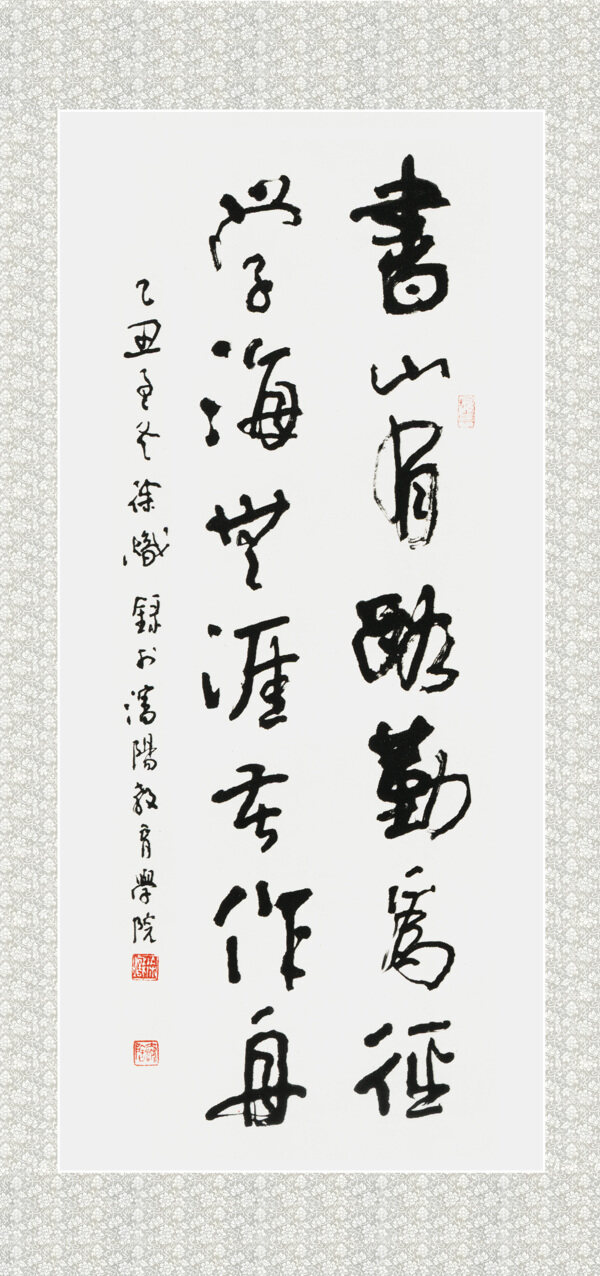 書山有路勤為徑
學海無涯苦作舟
乙丑孟冬徐熾錄於瀋陽教育學院